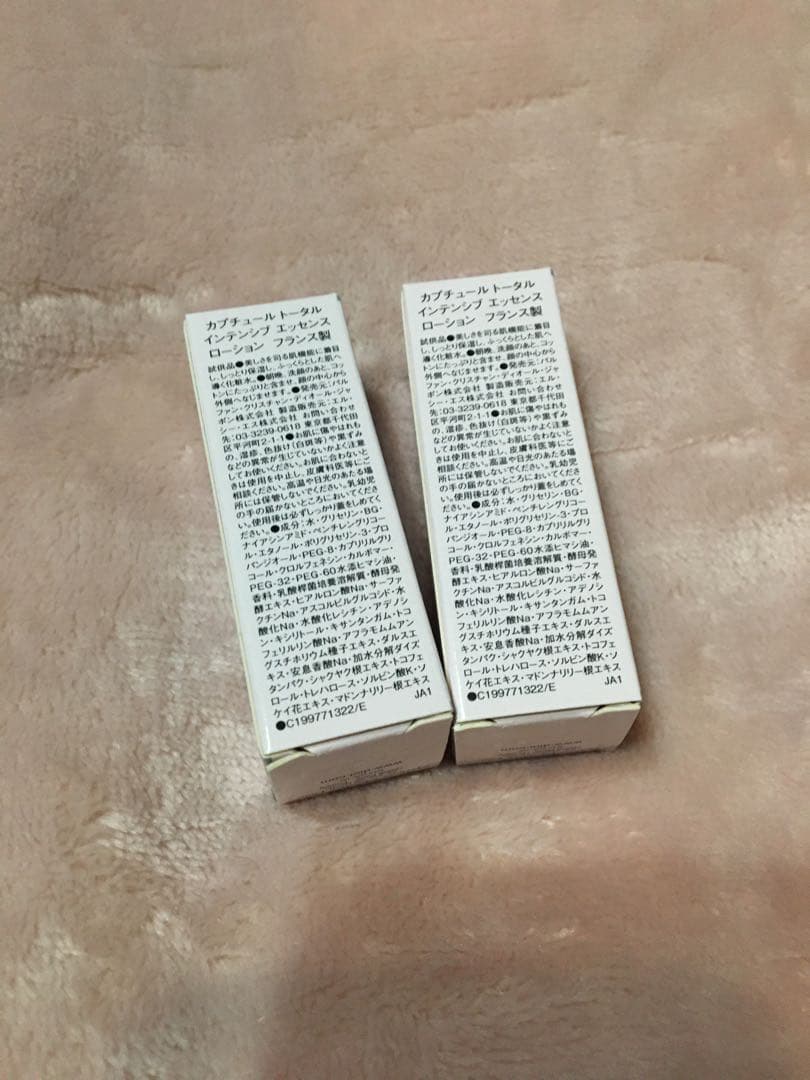 カプチュール トータル
インテンシブ エッセンス
ローション フランス製
試供品●美しさを司る肌機能に着目
し、しっとり保湿し、ふっくらとした肌へ
導く化粧水。●朝晩、洗顔のあと、コッ
トンにたっぷりと含ませ、顔の中心から
外側へなじませます。●発売元:パル
ファン・クリスチャン・ディオール・ジャ
ポン株式会社 製造販売元:エル・
シー・エス株式会社 お問い合わせ
先:03-3239-0618 東京都千代田
区平河町2-1-1●お肌に傷やはれも
の、湿疹、色抜け(白斑等)や黒ずみ
などの異常が生じていないかよく注意
してお使いください。お肌に合わないと
きは使用を中止し、皮膚科医等にご
相談ください。高温や日光のあたる場
所には保管しないでください。乳幼児
の手の届かないところにおいてくださ
い。使用後は必ずしっかり蓋をしめてく
ださい。●成分:水・グリセリン・BG・
ナイアシンアミド・ペンチレングリコー
ル・エタノール・ポリグリセリン-3・プロ
パンジオール・PEG-8・カプリリルグリ
コール・クロルフェネシン・カルボマー・
PEG-32・PEG-60水添ヒマシ油・
香料・乳酸桿菌培養溶解質・酵母発
酵エキス・ヒアルロン酸Na・サーファ
クチンNa・アスコルビルグルコシド・水
酸化Na・水酸化レシチン・アデノシ
ン・キシリトール・キサンタンガム・トコ
フェリルリン酸Na・アフラモムムアン
グスチホリウム種子エキス・ダルスエ
キス・安息香酸Na・加水分解ダイズ
タンパク・シャクヤク根エキス・トコフェ
ロール・トレハロース・ソルビン酸K・ソ
ケイ花エキス・マドンナリリー根エキス
●C199771322/E JA1
カプチュール トータル
インテンシブ エッセンス
ローション フランス製
試供品●美しさを司る肌機能に着目
し、しっとり保湿し、ふっくらとした肌へ
導く化粧水。●朝晩、洗顔のあと、コッ
トンにたっぷりと含ませ、顔の中心から
外側へなじませます。●発売元:パル
ファン・クリスチャン・ディオール・ジャ
ポン株式会社 製造販売元:エル・
シー・エス株式会社 お問い合わせ
先:03-3239-0618 東京都千代田
区平河町2-1-1●お肌に傷やはれも
の、湿疹、色抜け(白斑等)や黒ずみ
などの異常が生じていないかよく注意
してお使いください。お肌に合わないと
きは使用を中止し、皮膚科医等にご
相談ください。高温や日光のあたる場
所には保管しないでください。乳幼児
の手の届かないところにおいてくださ
い。使用後は必ずしっかり蓋をしめてく
ださい。●成分:水・グリセリン・BG・
ナイアシンアミド・ペンチレングリコー
ル・エタノール・ポリグリセリン-3・プロ
パンジオール・PEG-8・カプリリルグリ
コール・クロルフェネシン・カルボマー・
PEG-32・PEG-60水添ヒマシ油・
香料・乳酸桿菌培養溶解質・酵母発
酵エキス・ヒアルロン酸Na・サーファ
クチンNa・アスコルビルグルコシド・水
酸化Na・水酸化レシチン・アデノシ
ン・キシリトール・キサンタンガム・トコ
フェリルリン酸Na・アフラモムムアン
グスチホリウム種子エキス・ダルスエ
キス・安息香酸Na・加水分解ダイズ
タンパク・シャクヤク根エキス・トコフェ
ロール・トレハロース・ソルビン酸K・ソ
ケイ花エキス・マドンナリリー根エキス
●C199771322/E JA1